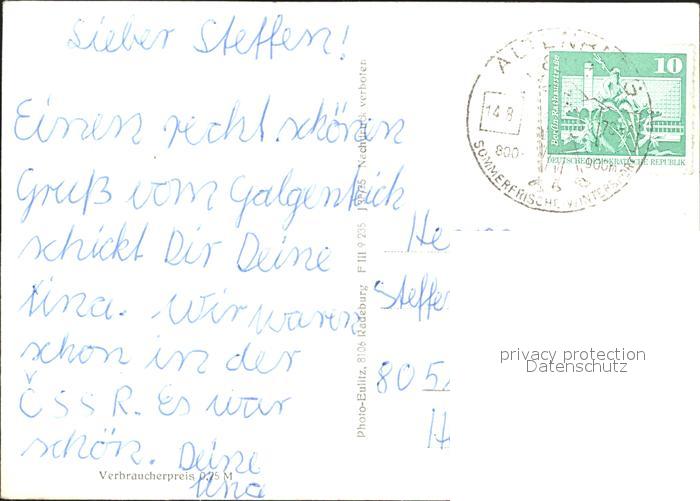 Lieber Steffen!
Einen recht schönen
Gruß vom Galgenteich
schickt Dir Deine
Tina. Wir waren
schon in der
ČSSR. Es war
schön. Deine
Tina
Verbraucherpreis 0,25 M
Photo-Eulitz, 8106 Radeburg F III 9 235 Nachdruck verboten
He
Steffe
805
H
10
Berlin, Rathausstraße
DEUTSCHE DEMOKRATISCHE REPUBLIK
ALTENBERG
14.8.
800-
900m
SOMMERFRISCHE WINTERSPORT
privacy protection
Datenschutz